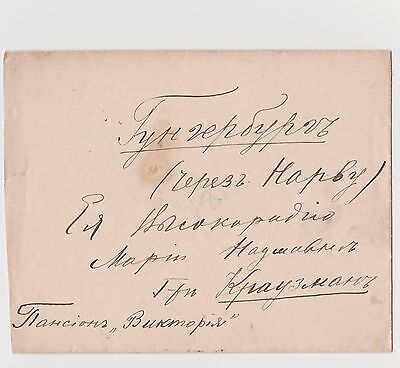 Гунгербургъ
(черезъ Нарву)
Ея Высокородію
Маріи Наумовнѣ
Г-жѣ Краузманъ
Пансіонъ „Викторія“